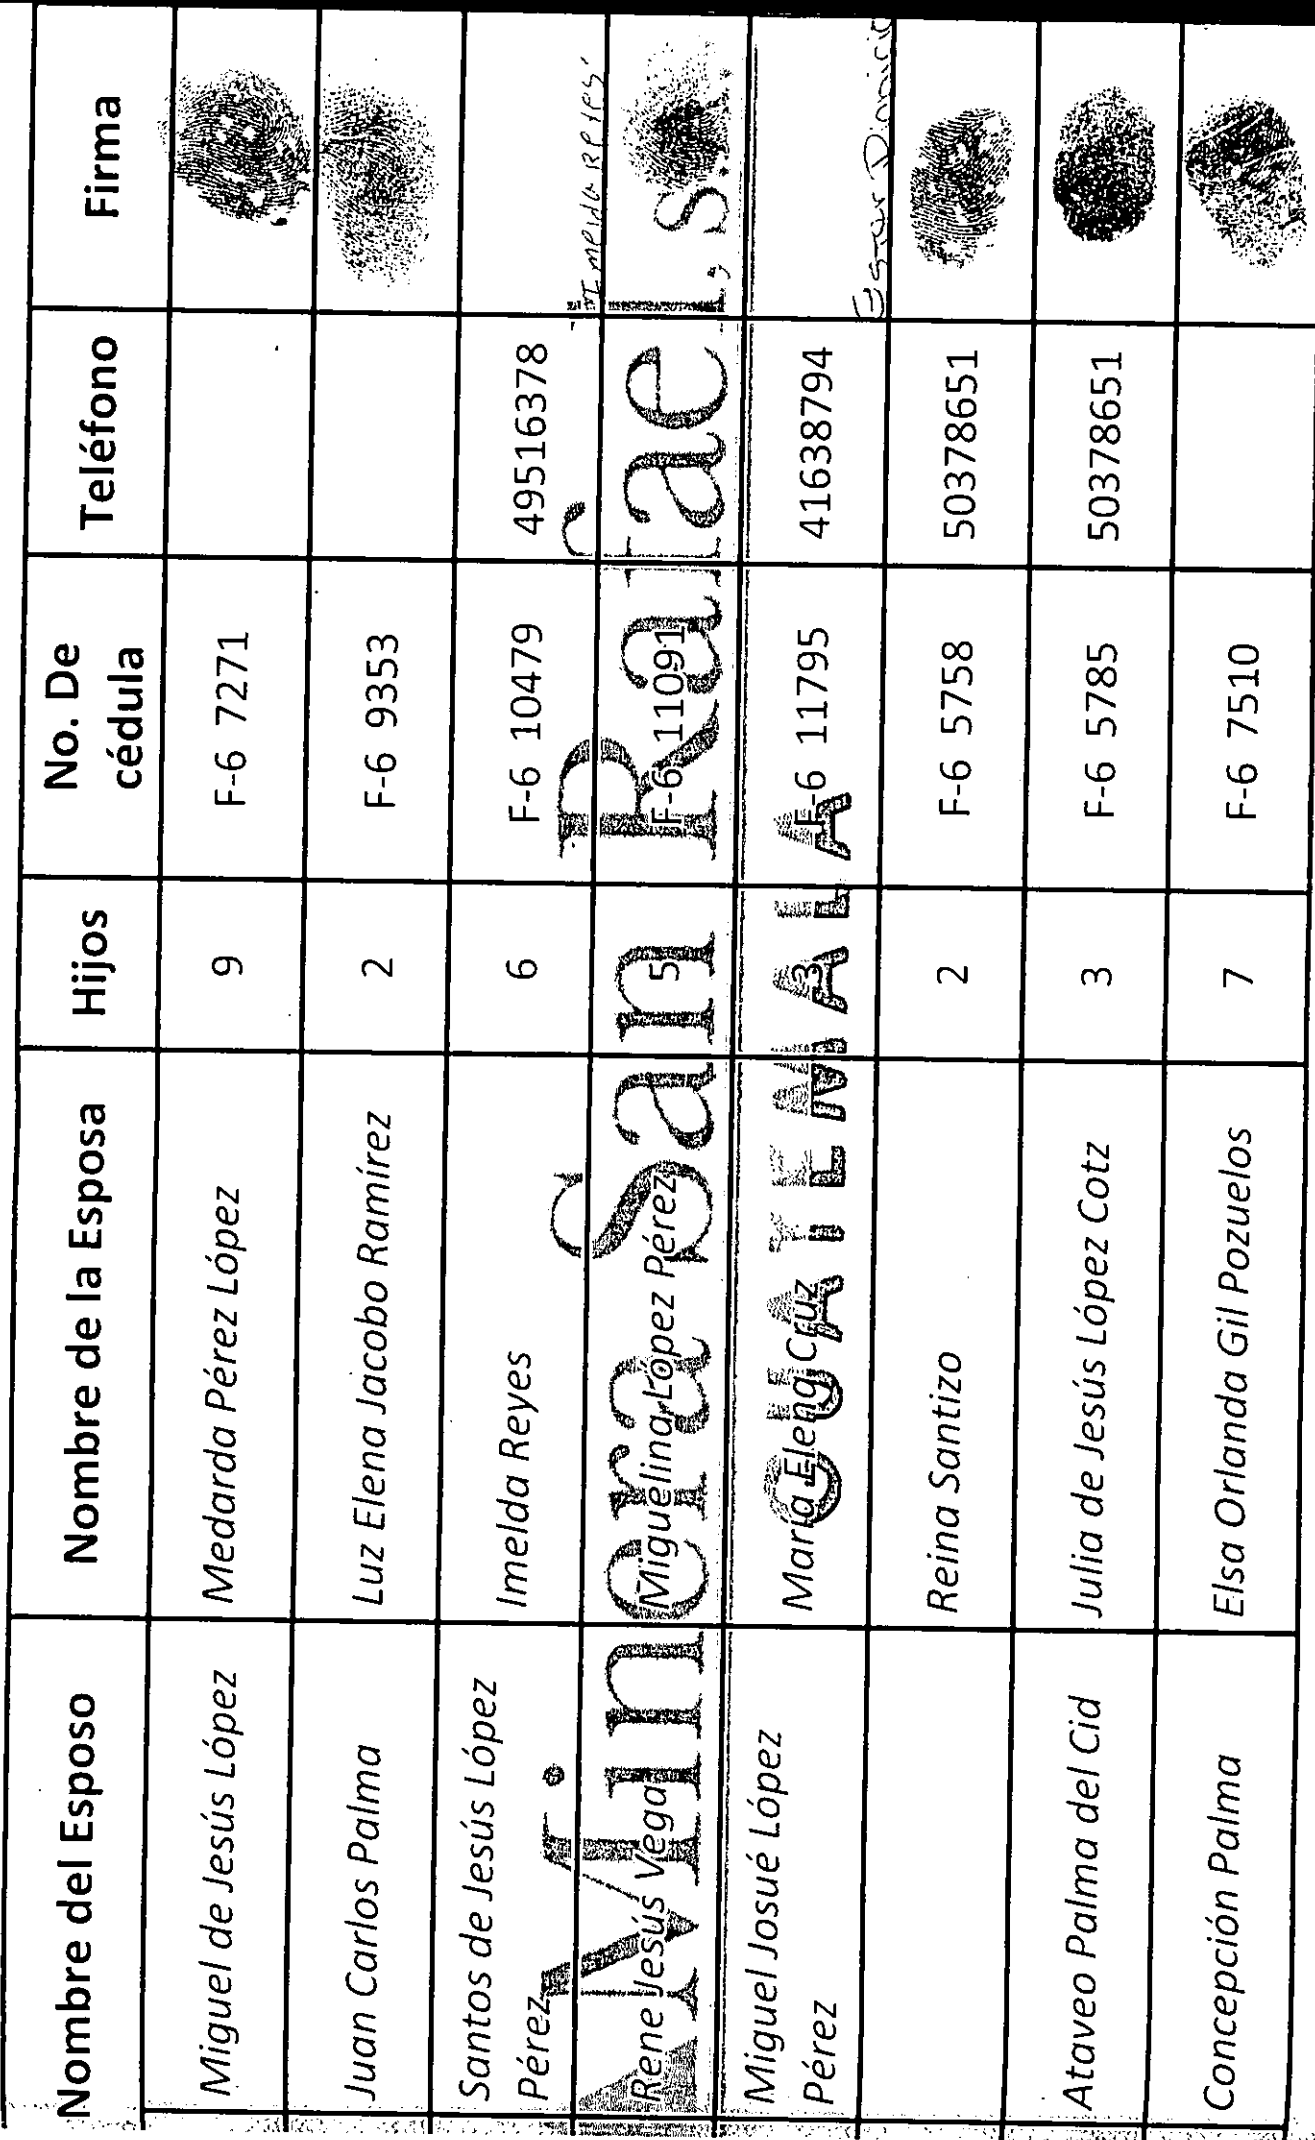 Nombre del Esposo Nombre de la Esposa Hijos No. De cédula Teléfono Firma
Miguel de Jesús López Medarda Pérez López 9 F-6 7271
Juan Carlos Palma Luz Elena Jacobo Ramírez 2 F-6 9353
Santos de Jesús López Pérez Imelda Reyes 6 F-6 10479 49516378 Imelda Reyes
Rene Jesús Vega Miguelina López Pérez 5 F-6 11091
Minera San Rafael, S.A.
Miguel Josué López Pérez María Elena Cruz 3 F-6 11795 41638794
GUATEMALA
Reina Santizo 2 F-6 5758 50378651
Ataveo Palma del Cid Julia de Jesús López Cotz 3 F-6 5785 50378651
Concepción Palma Elsa Orlanda Gil Pozuelos 7 F-6 7510